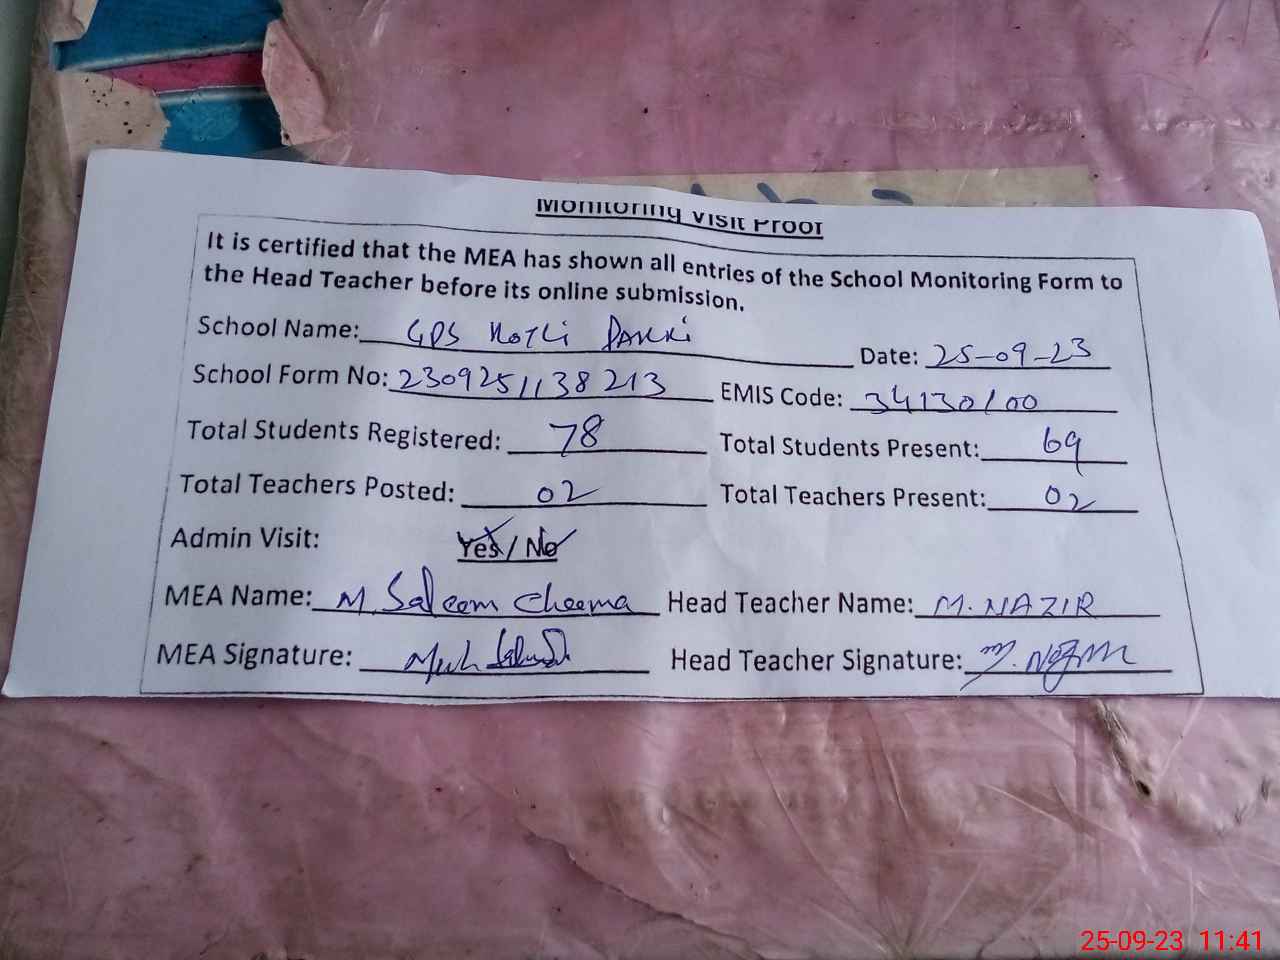 Monitoring Visit Proof
It is certified that the MEA has shown all entries of the School Monitoring Form to
the Head Teacher before its online submission.
School Name: GPS Kotli Pakki Date: 25-09-23
School Form No: 2309251138213 EMIS Code: 34130100
Total Students Registered: 78 Total Students Present: 69
Total Teachers Posted: 02 Total Teachers Present: 02
Admin Visit: Yes / No
MEA Name: M. Saleem Cheema Head Teacher Name: M. NAZIR
MEA Signature: Head Teacher Signature:
25-09-23 11:41